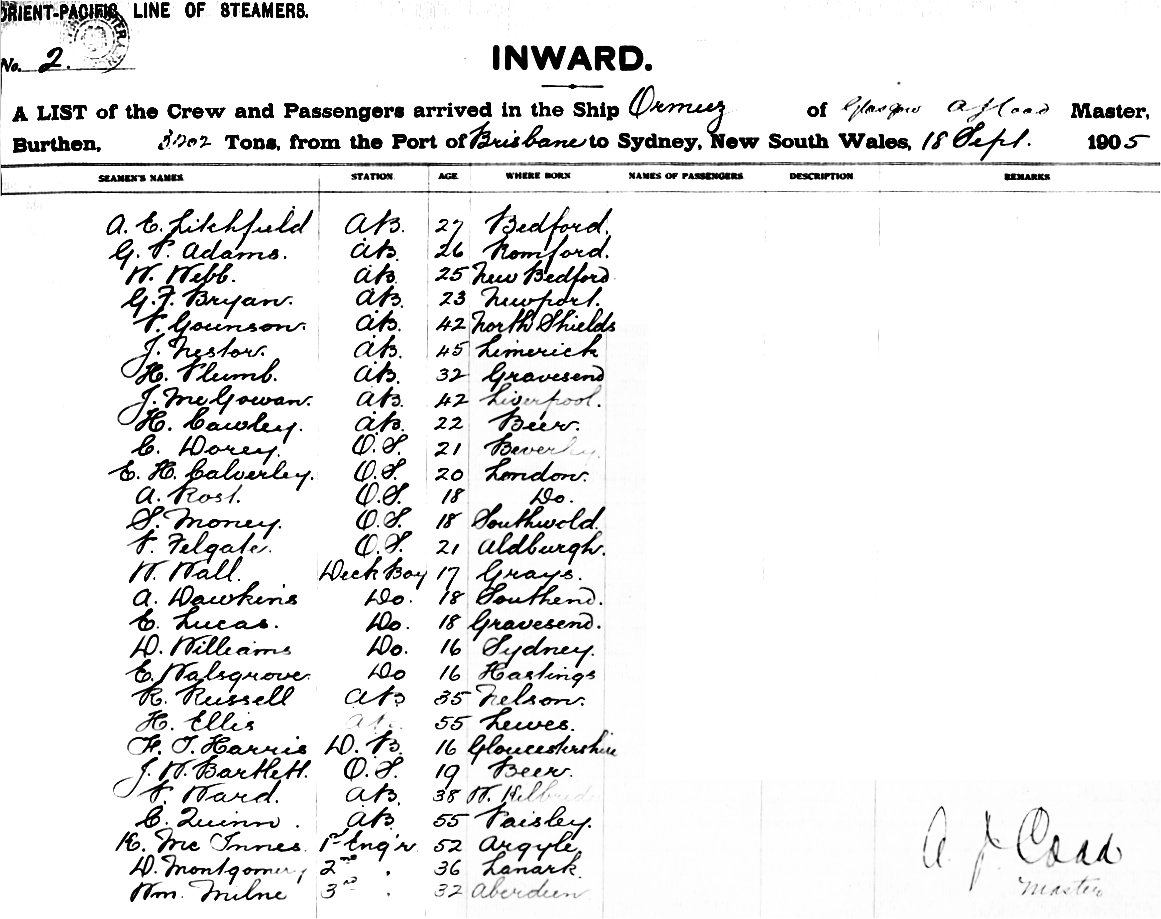 ORIENT-PACIFIC LINE OF STEAMERS.
No. 2.
INWARD.
A LIST of the Crew and Passengers arrived in the Ship Ormuz of Glasgow A J Coad Master,
Burthen, Tons, from the Port of Brisbane to Sydney, New South Wales, 18 Sept. 1905
SEAMEN'S NAMES STATION AGE WHERE BORN NAMES OF PASSENGERS DESCRIPTION REMARKS
A. E. Litchfield AB. 27 Bedford.
G. P. Adams. AB. 26 Romford.
W. Webb. AB. 25 New Bedford
G. F. Bryan. AB. 23 Newport.
P. Gounson. AB. 42 North Shields
J. Nestor. AB. 45 Limerick
H. Plumb. AB. 32 Gravesend
J. McGowan. AB. 42 Liverpool.
H. Cawley. AB. 22 Beer.
C. Dorey. O.S. 21 Beverley.
E. H. Calverley. O.S. 20 London.
A. Rost. O.S. 18 Do.
S. Money. O.S. 18 Southwold.
P. Felgate. O.S. 21 Aldburgh.
W. Wall. Deck Boy 17 Grays.
A. Dawkins Do. 18 Southend.
E. Lucas. Do. 18 Gravesend.
D. Williams Do. 16 Sydney.
E. Walsgrove. Do 16 Hastings
R. Russell AB 35 Nelson.
H. Ellis AB. 55 Lewes.
F. J. Harris D. B. 16 Gloucestershire
J. W. Bartlett. O.S. 19 Beer.
P. Ward. AB. 38 W.
C. Quinn. AB 55 Paisley.
K. Mc Innes 1st Eng'r. 52 Argyle
D. Montgomery 2nd . 36 Lanark.
Wm. Milne 3rd . 32 Aberdeen
A J Coad
Master